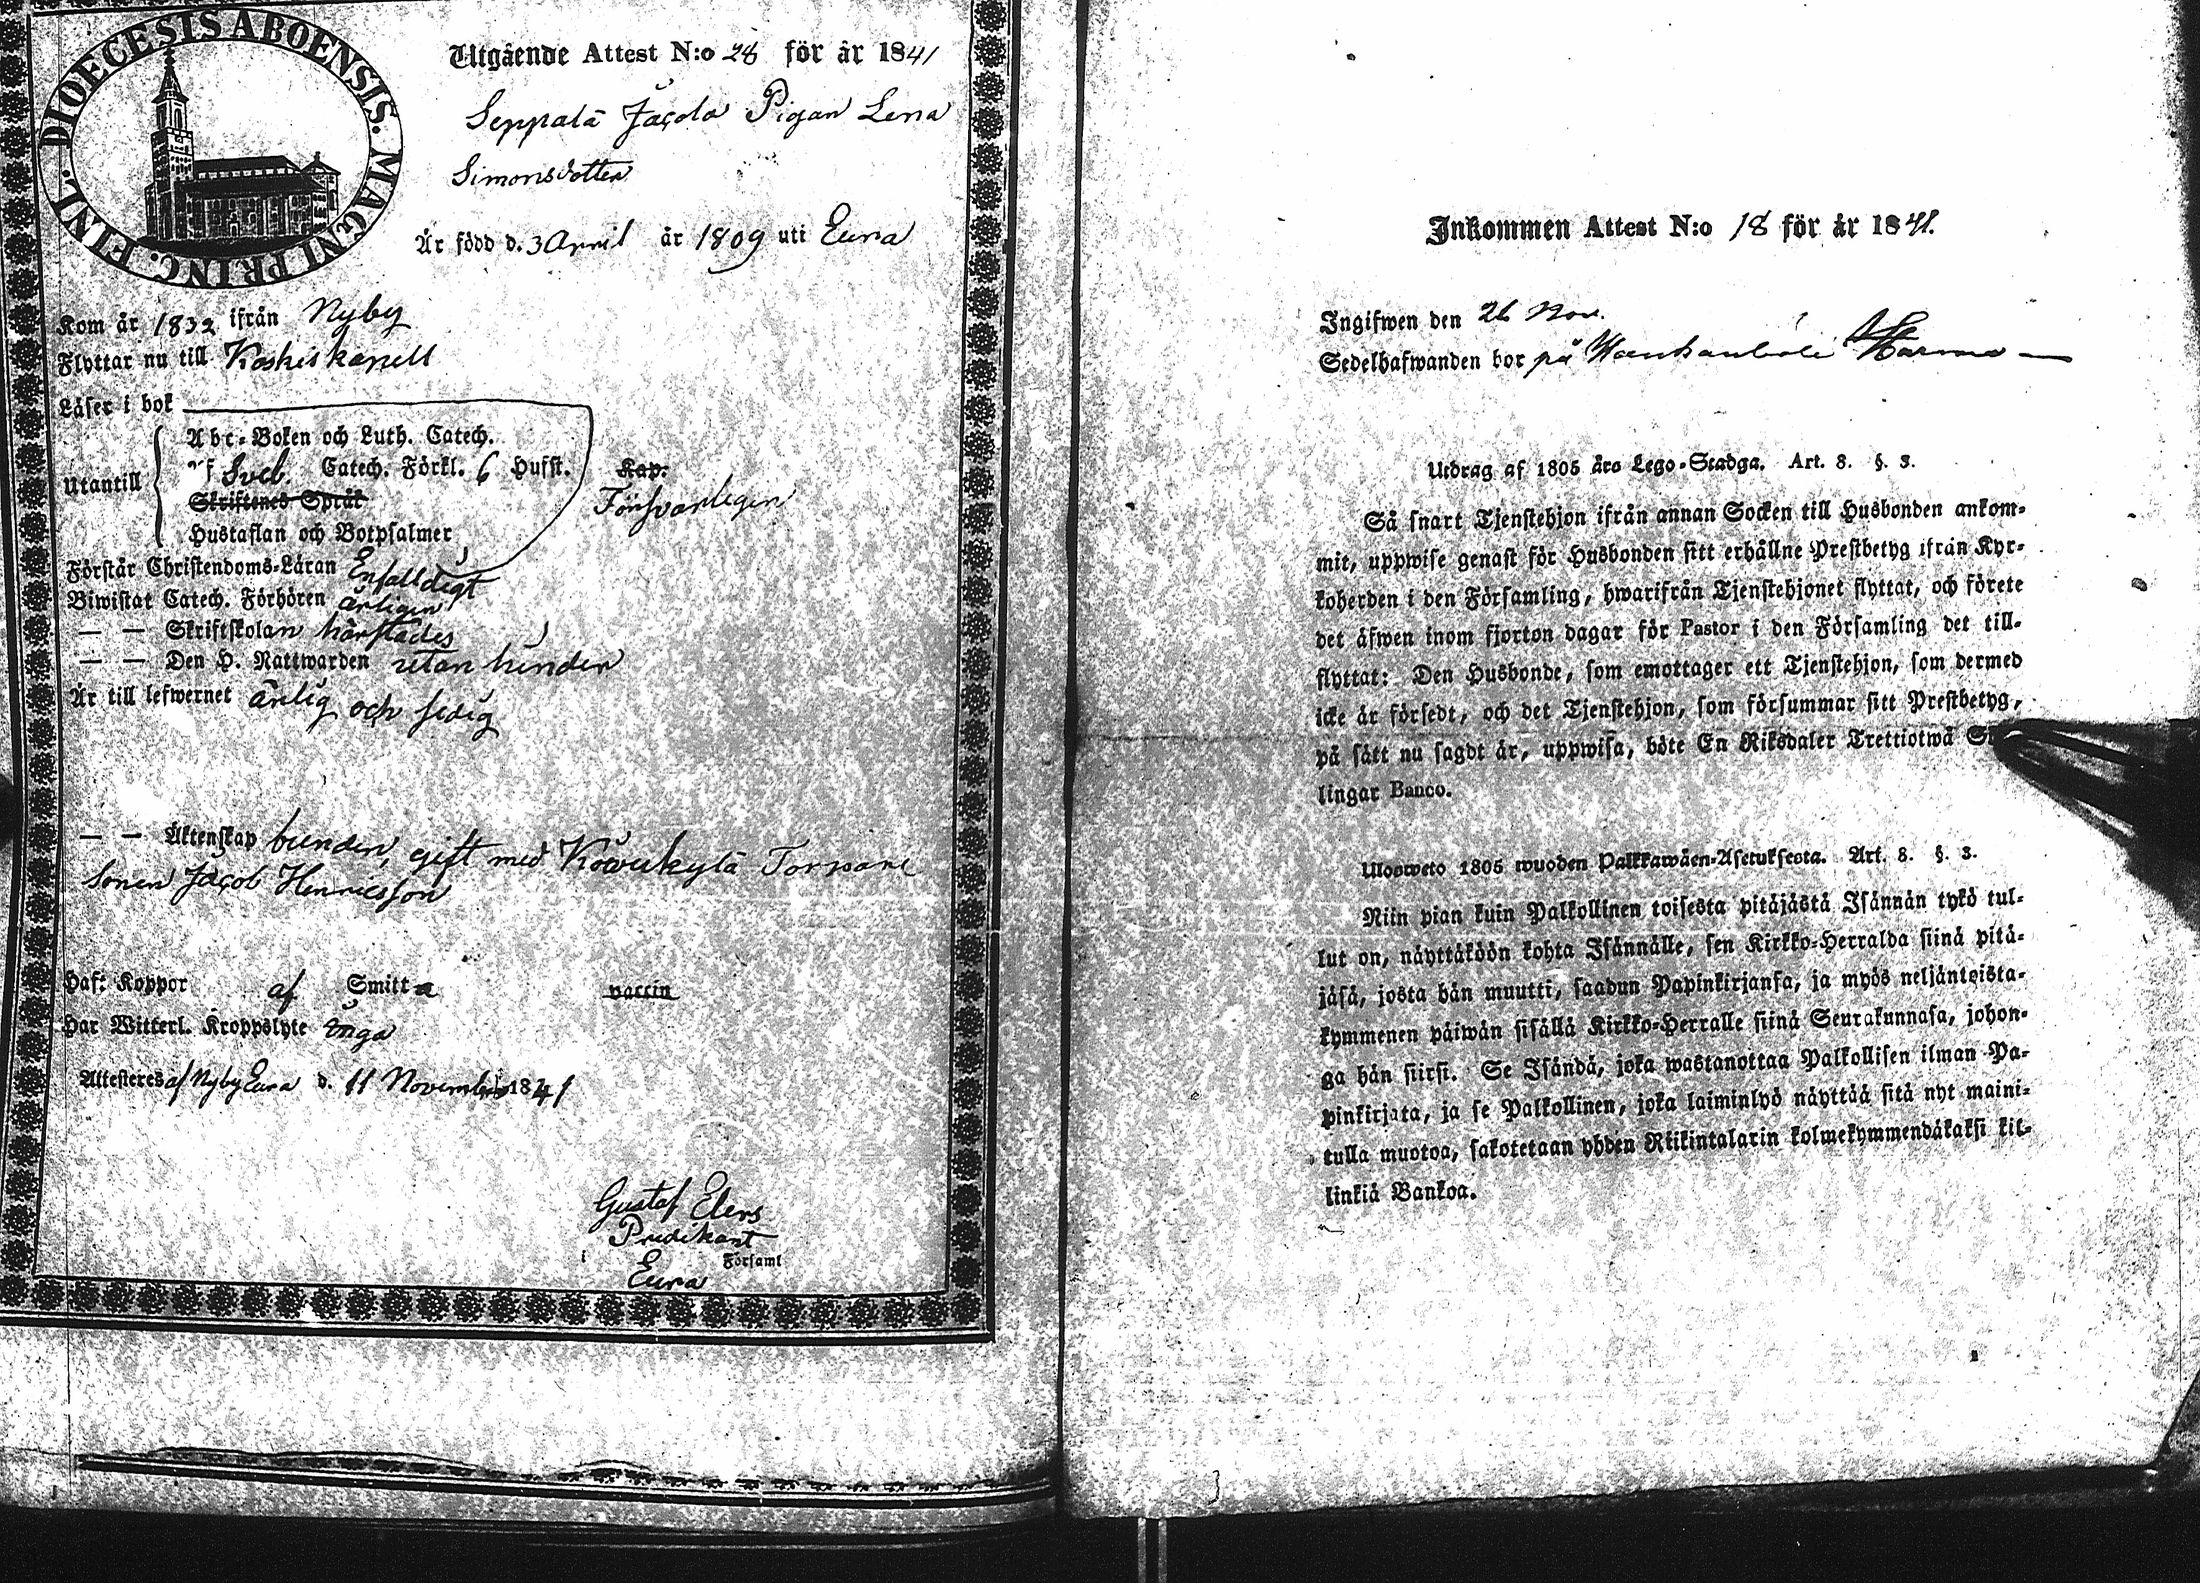 DIOECESIS ABOENSIS. MAGNI PRINC. FINL.
Utgående Attest N:o 28 för år 1841
Seppälä Jacola Pigan Lena
Simonsdotter
Är född d. 3 April år 1809 uti Eura
Kom år 1832 ifrån Nyby
Flyttar nu till Koskis kapell
Läser i bok
Utantill
Abc-Boken och Luth. Catech.
Sveb. Catech. Förkl. 6 Hufst. Kap.
Skriftenes Språk
Försvarligen
Hustaflan och Botpsalmer
Förstår Christendoms-Läran Enfalldigt
Biwistat Catech. Förhören årligen
— — Skriftskolan härstädes
— — Den H. Nattwarden utan hinder
Är till lefwernet ärlig och sedig
— — Äktenskap bunden, gift med Torpare
sonen Jacob Henricsson
Haf: Koppor af Smitta vaccin
Har Witterl. Kroppslyte inga
Attesteres af Nyby Eura d. 11 November 1841
Gustaf Elers
Predikant
i Församl
Eura
Inkommen Attest N:o 18 för år 1841.
Ingifwen den 26 Nov.
Sedelhafwanden bor på
Utdrag af 1805 års Lego-Stadga. Art. 8. §. 3.
Så snart Tjenstehjon ifrån annan Socken till Husbonden ankom-
mit, uppwise genast för Husbonden sitt erhållne Prestbetyg ifrån Kyr-
koherden i den Församling, hwarifrån Tjenstehjonet flyttat, och förete
det äfwen inom fjorton dagar för Pastor i den Församling det till-
flyttat: Den Husbonde, som emottager ett Tjenstehjon, som dermed
icke är försedt, och det Tjenstehjon, som försummar sitt Prestbetyg,
på sätt nu sagdt är, uppwisa, böte En Riksdaler Trettiotwå
lingar Banco.
Ulosweto 1805 wuoden Palkkawäen-Asetuksesta. Art. 8. §. 3.
Niin pian kuin Palkollinen toisesta pitäjästä Isännän tykö tul-
lut on, näyttäköön kohta Isännälle, sen Kirkko-Herralda siinä pitä-
jäsä, josta hän muutti, saadun Papinkirjansa, ja myös neljäntoista-
kymmenen päiwän sisällä Kirkko-Herralle siinä Seurakunnasa, johon-
ga hän siirsi. Se Isändä, joka wastanottaa Palkollisen ilman Pa-
pinkirjata, ja se Palkollinen, joka laiminlyö näyttää sitä nyt maini-
tulla muotoa, sakotetaan yhden Riikintalarin kolmekymmendäkaksi kil-
linkiä Bankoa.